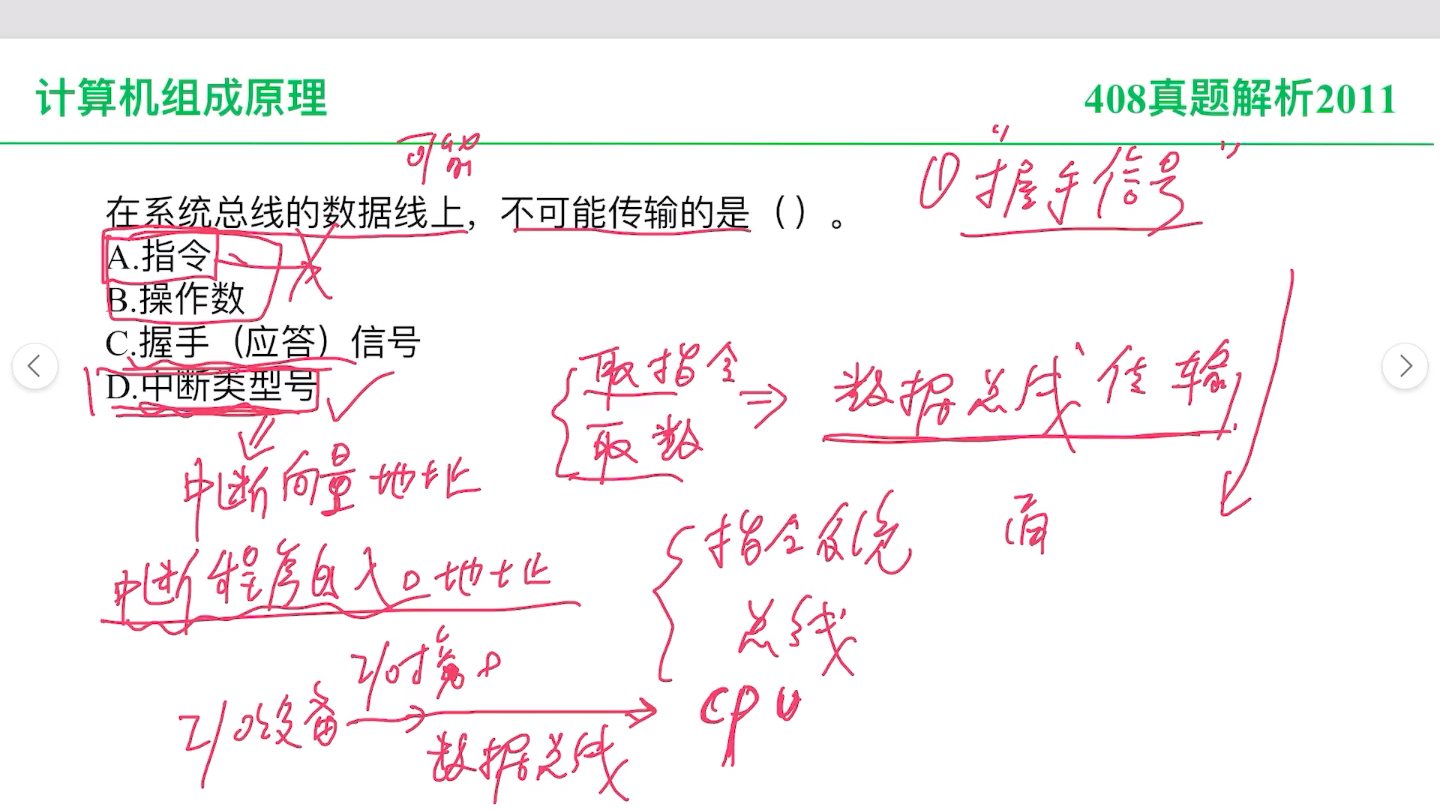 计算机组成原理
408真题解析2011
可能
①“握手信号”
在系统总线的数据线上，不可能传输的是（）。
A.指令
B.操作数
C.握手（应答）信号
D.中断类型号
取指令
取数
⇒ 数据总线传输
中断向量地址
中断程序的入口地址
指令系统
总线
CPU
I/O接口
I/O设备
数据总线